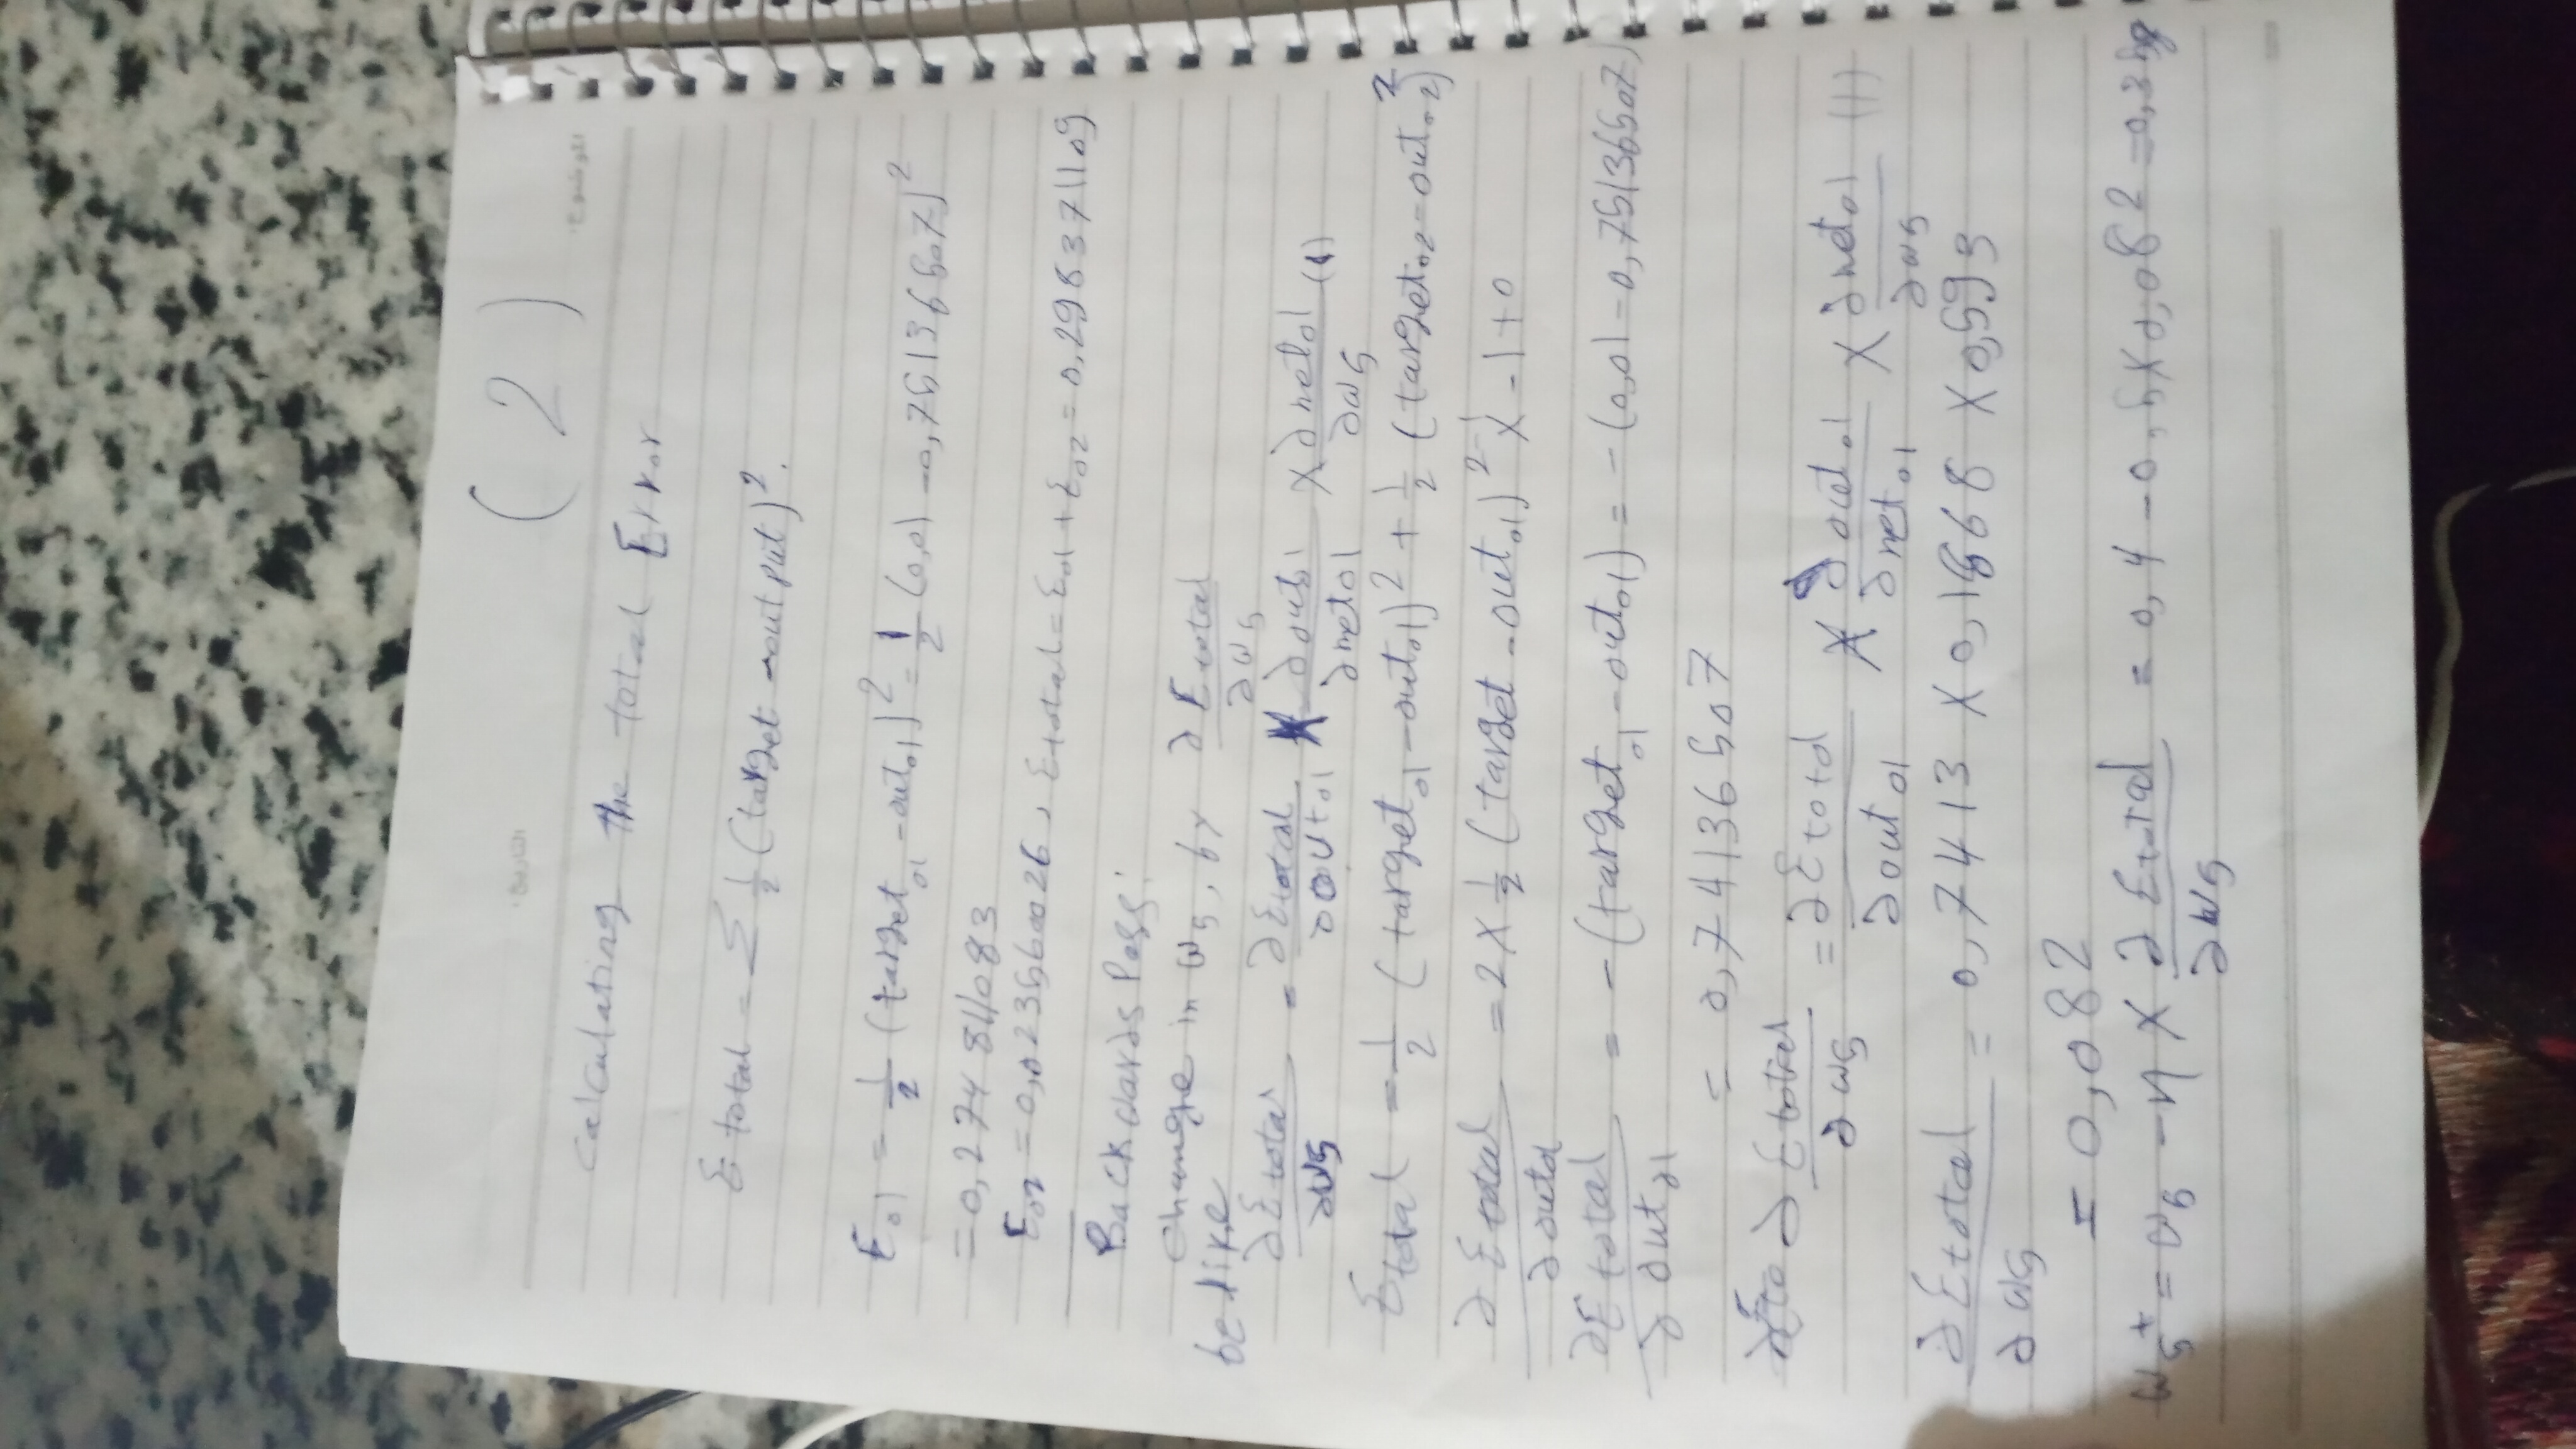 ( 2 )
calculating the total Error
Σ total = Σ 1/2 (target - output)².
E₀₁ = 1/2 (target₀₁ - out₀₁)² = 1/2 (0,01 - 0,75136507)²
= 0,274811083
E₀₂ = 0,023560026, Σtotal = Σ₀₁ + Σ₀₂ = 0,298371109
Backwards Pass:
change in ω₅, by ∂Etotal/∂ω₅
be like
∂Σtotal/∂ω5 = ∂Σtotal/∂out₀₁ * ∂out₀₁/∂net₀₁ × ∂net₀₁/∂ω₅ (1)
Σtotal = 1/2 (target₀₁ - out₀₁)² + 1/2 (target₀₂ - out₀₂)²
∂Σtotal/∂out₀₁ = 2 × 1/2 (target - out₀₁)²⁻¹ × -1 + 0
∂Σtotal/∂out₀₁ = -(target₀₁ - out₀₁) = -(0,01 - 0,75136507)
= 0,74136507
∂Σtotal/∂ω₅ = ∂Σtotal/∂out₀₁ × ∂out₀₁/∂net₀₁ × ∂net₀₁/∂ω₅ (1)
∂Σtotal/∂ω5 = 0,7413 × 0,1868 × 0,593
= 0,082
ω₅⁺ = ω₅ - η × ∂Σtotal/∂ω5 = 0,4 - 0,5 × 0,082 =